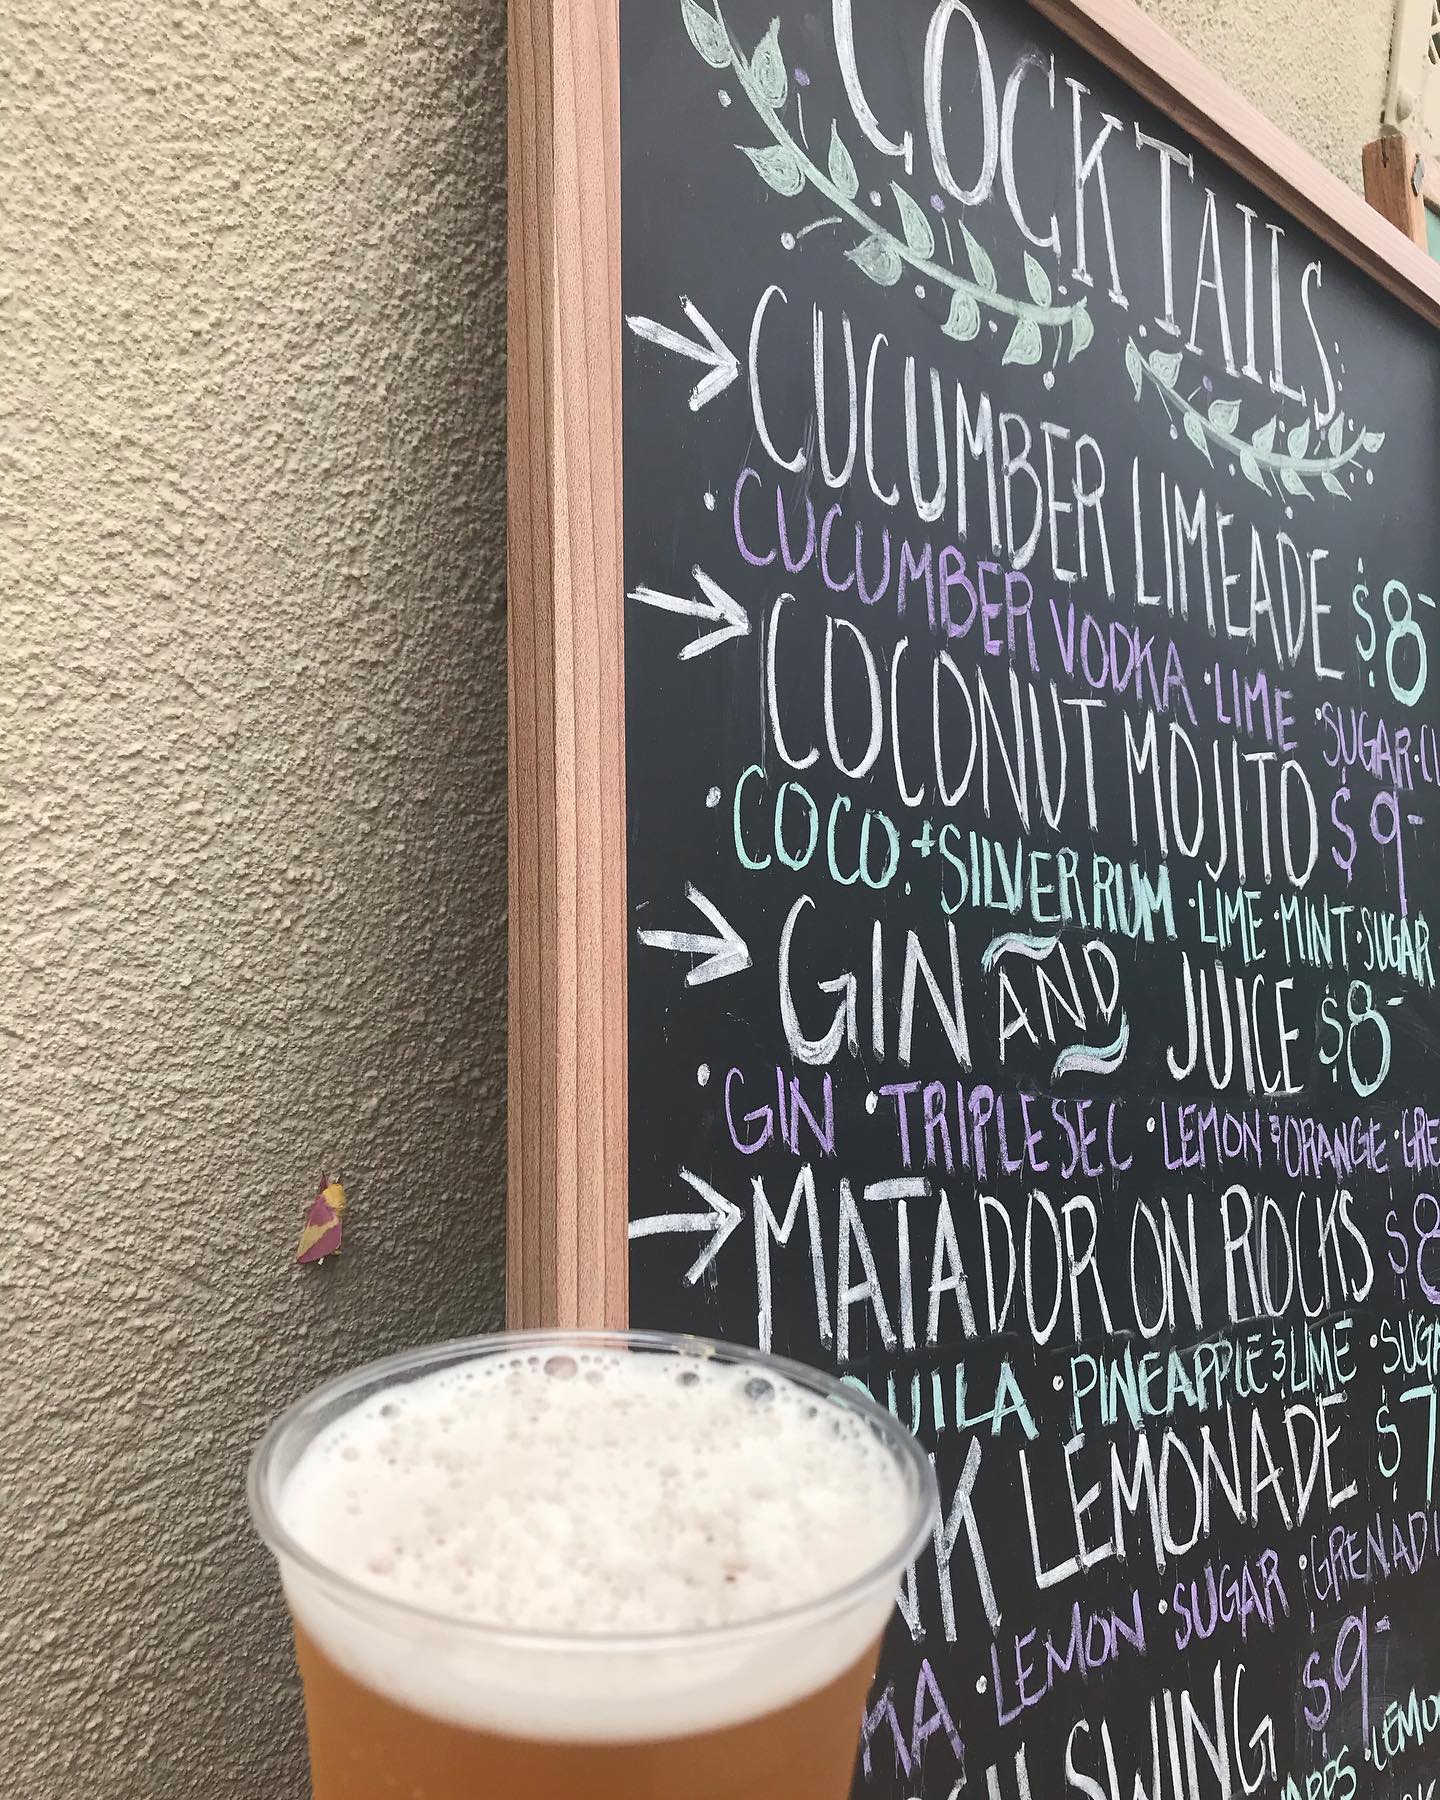 COCKTAILS
CUCUMBER LIMEADE $8-
• CUCUMBER VODKA • LIME • SUGAR •
COCONUT MOJITO $9-
• COCO + SILVER RUM • LIME • MINT • SUGAR
GIN AND JUICE $8-
• GIN • TRIPLE SEC • LEMON & ORANGE • GRE
MATADOR ON ROCKS $8
UILA • PINEAPPLE & LIME • SUGA
NK LEMONADE $7
KA • LEMON SUGAR • GRENADI
SWING $9-
APPS • LEMO